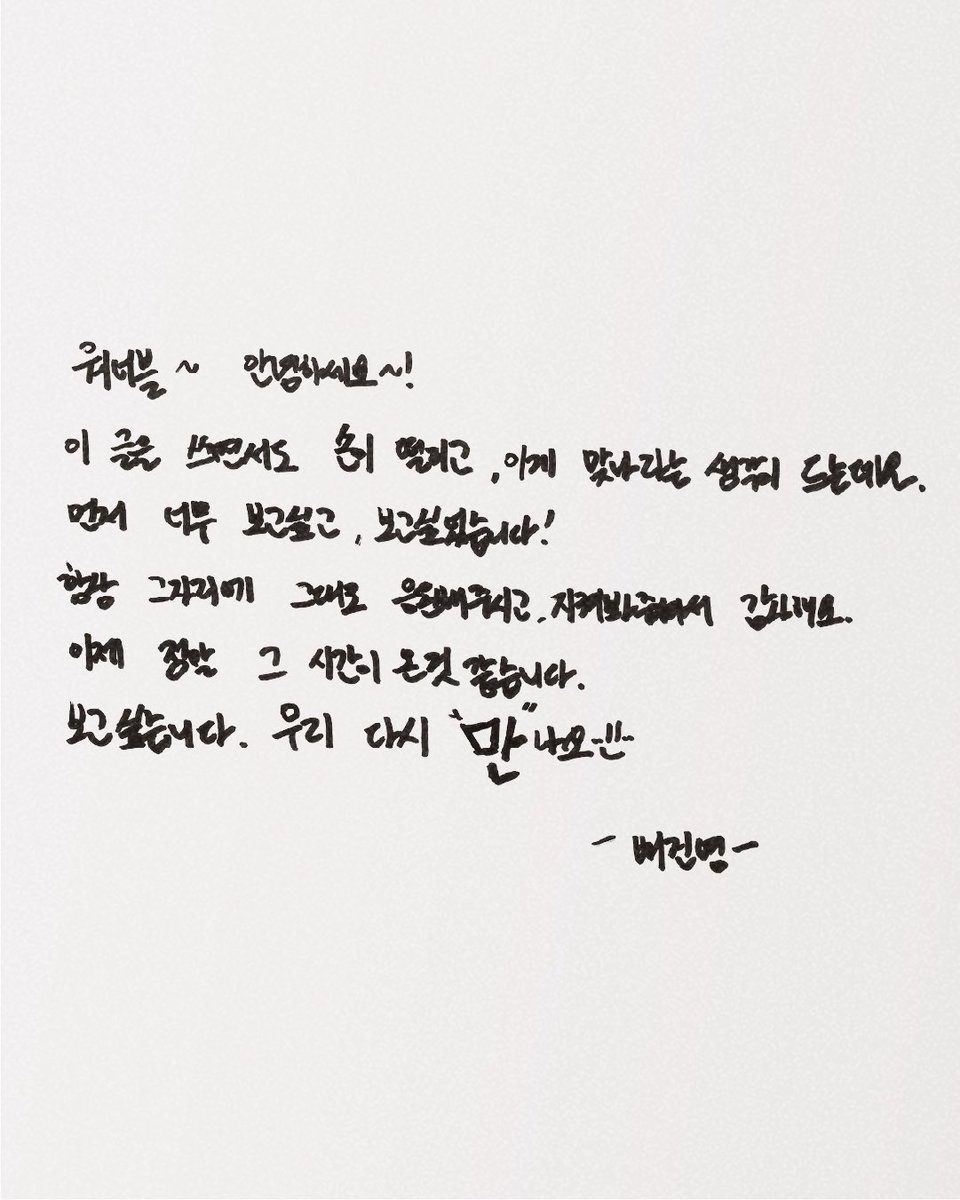 워너블~ 안녕하세요~!
이 글을 쓰면서도 손이 떨리고, 이게 맞나라는 생각이 드는데요.
먼저 너무 보고싶고, 보고싶었습니다!
항상 그자리에 그대로 응원해주시고, 지켜봐주셔서 감사해요.
이제 정말 그 시간이 온것 같습니다.
보고싶습니다. 우리 다시 "만"나요!!!
- 배진영 -